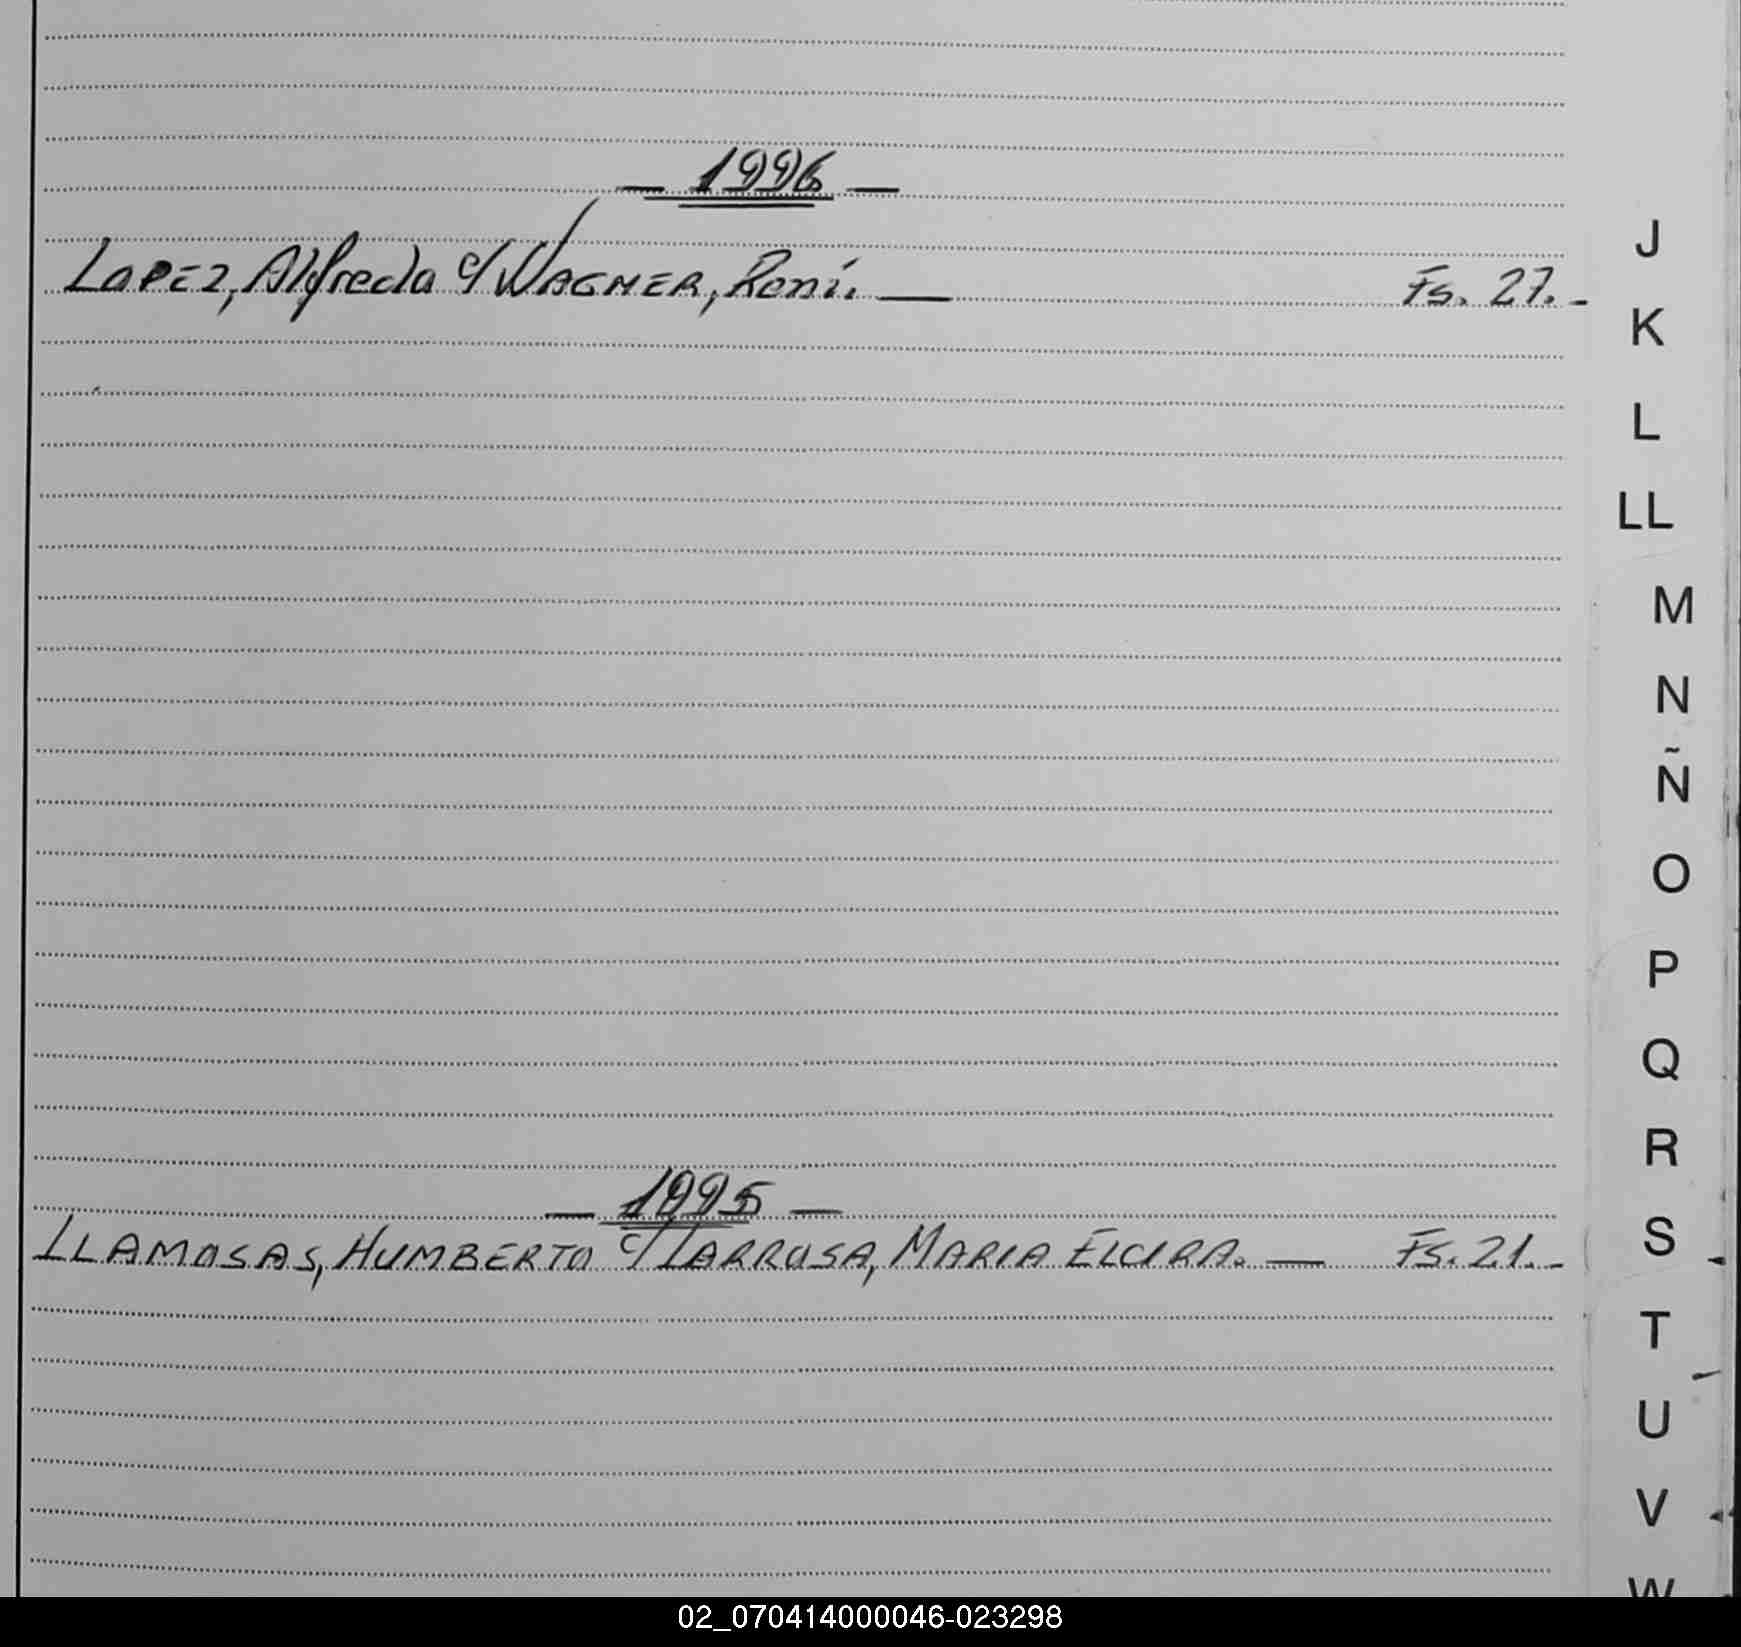 — 1996 —
LOPEZ, Alfredo c/ WAGNER, Reni. — Fs. 27.-
— 1995 —
LLAMOSAS, HUMBERTO c/ LARROSA, MARIA ELCIRA. — Fs. 21.-
J
K
L
LL
M
N
Ñ
O
P
Q
R
S
T
U
V
W
02_070414000046-023298